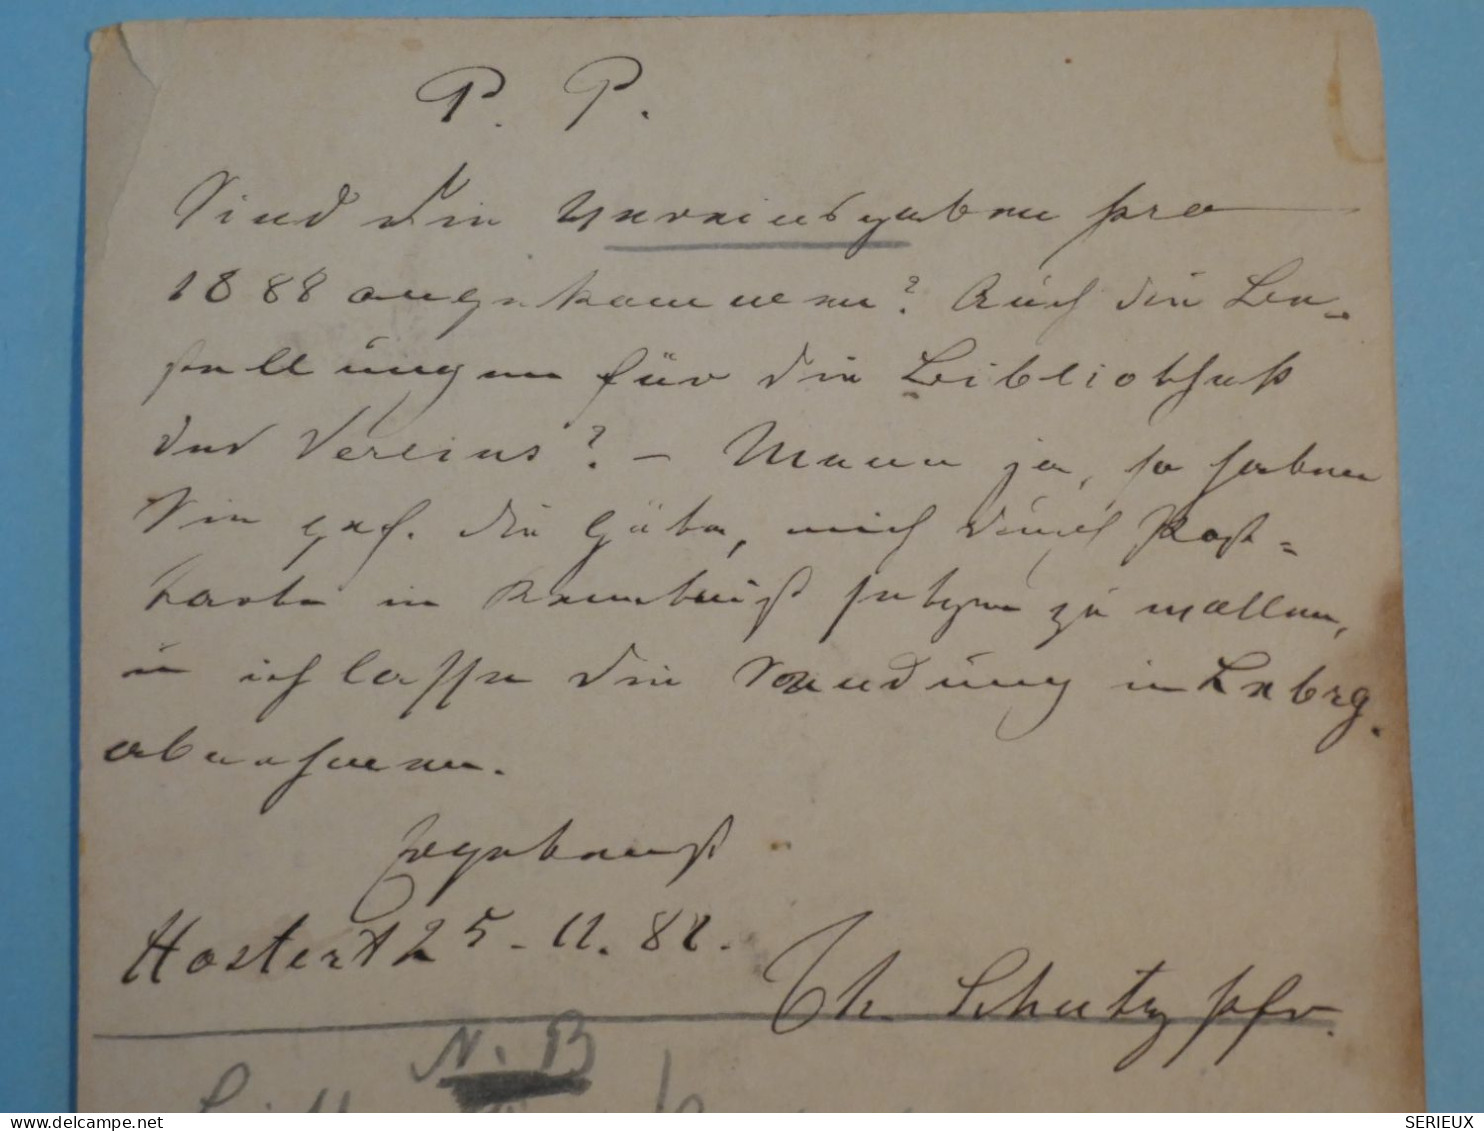 P. P.
Sind die Vereinsgaben pro
1888 angekommen? Auch die Be-
stellungen für die Bibliothek
des Vereins? – Wenn ja, so haben
Sie gef. die Güte, mich durch Post-
karte in Kenntniß setzen zu wollen,
u ich lasse die Sendung in Lxbrg.
abnehmen.
Ergebenst
Hostert 25-11.88.
Th Schutz Pfr.
N. B
delcampe.net
SERIEUX